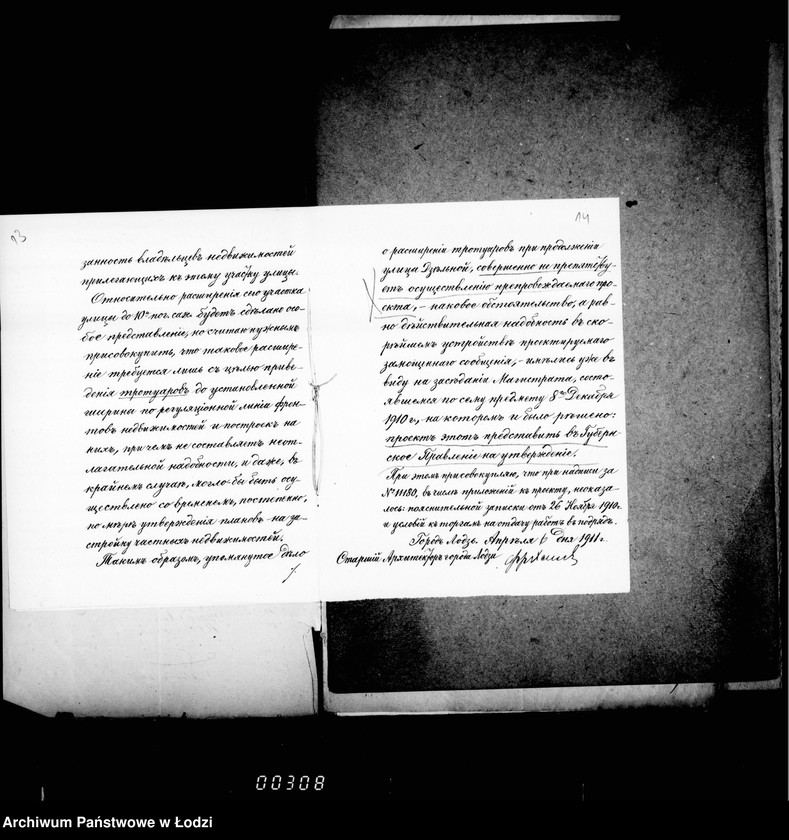 93
занность владѣльцевъ недвижимостей
прилегающихъ къ этому участку улицы.
Относительно расширенія сего участка
улицы до 10 пог. саж. будетъ сдѣлано осо-
бое представленіе, но считаю нужнымъ
присовокупить, что таковое расшире-
ніе требуется лишь съ цѣлью приве-
денія тротуаровъ до установленной
ширины по регуляціонной линіи фрон-
товъ недвижимостей и построекъ на
нихъ, при чемъ не составляетъ неот-
лагательной надобности, и даже, въ
крайнемъ случаѣ, могло-бы быть осу-
ществлено со временемъ, постепенно,
по мѣрѣ утвержденія плановъ на за-
стройку частныхъ недвижимостей.
Такимъ образомъ, упомянутое дѣло
14
о расширеніи тротуаровъ при продолженіи
улицы Дзѣльной, совершенно не препятству-
етъ осуществленію препровождаемаго про-
екта, – каковое обстоятельство, а рав-
но дѣйствительная надобность въ ско-
рѣйшемъ устройствѣ проектируемаго
замощеннаго сообщенія, – имѣлись уже въ
виду на засѣданіи Магистрата, состо-
явшемся по сему предмету 8го Декабря
1910 г., – на которомъ и было рѣшено:
проектъ этотъ представить въ Губерн-
ское Правленіе на утвержденіе.
При этомъ присовокупляю, что при надписи за
№ 11180, въ числѣ приложеній къ проекту, неоказа-
лось: пояснительной записки отъ 26 Ноября 1910 г.
и условій къ торгамъ на отдачу работъ въ подрядъ.
Городъ Лодзь. Апрѣля 6 дня 1911 г.
Старшій Архитекторъ города Лодзи
00308
Archiwum Państwowe w Łodzi